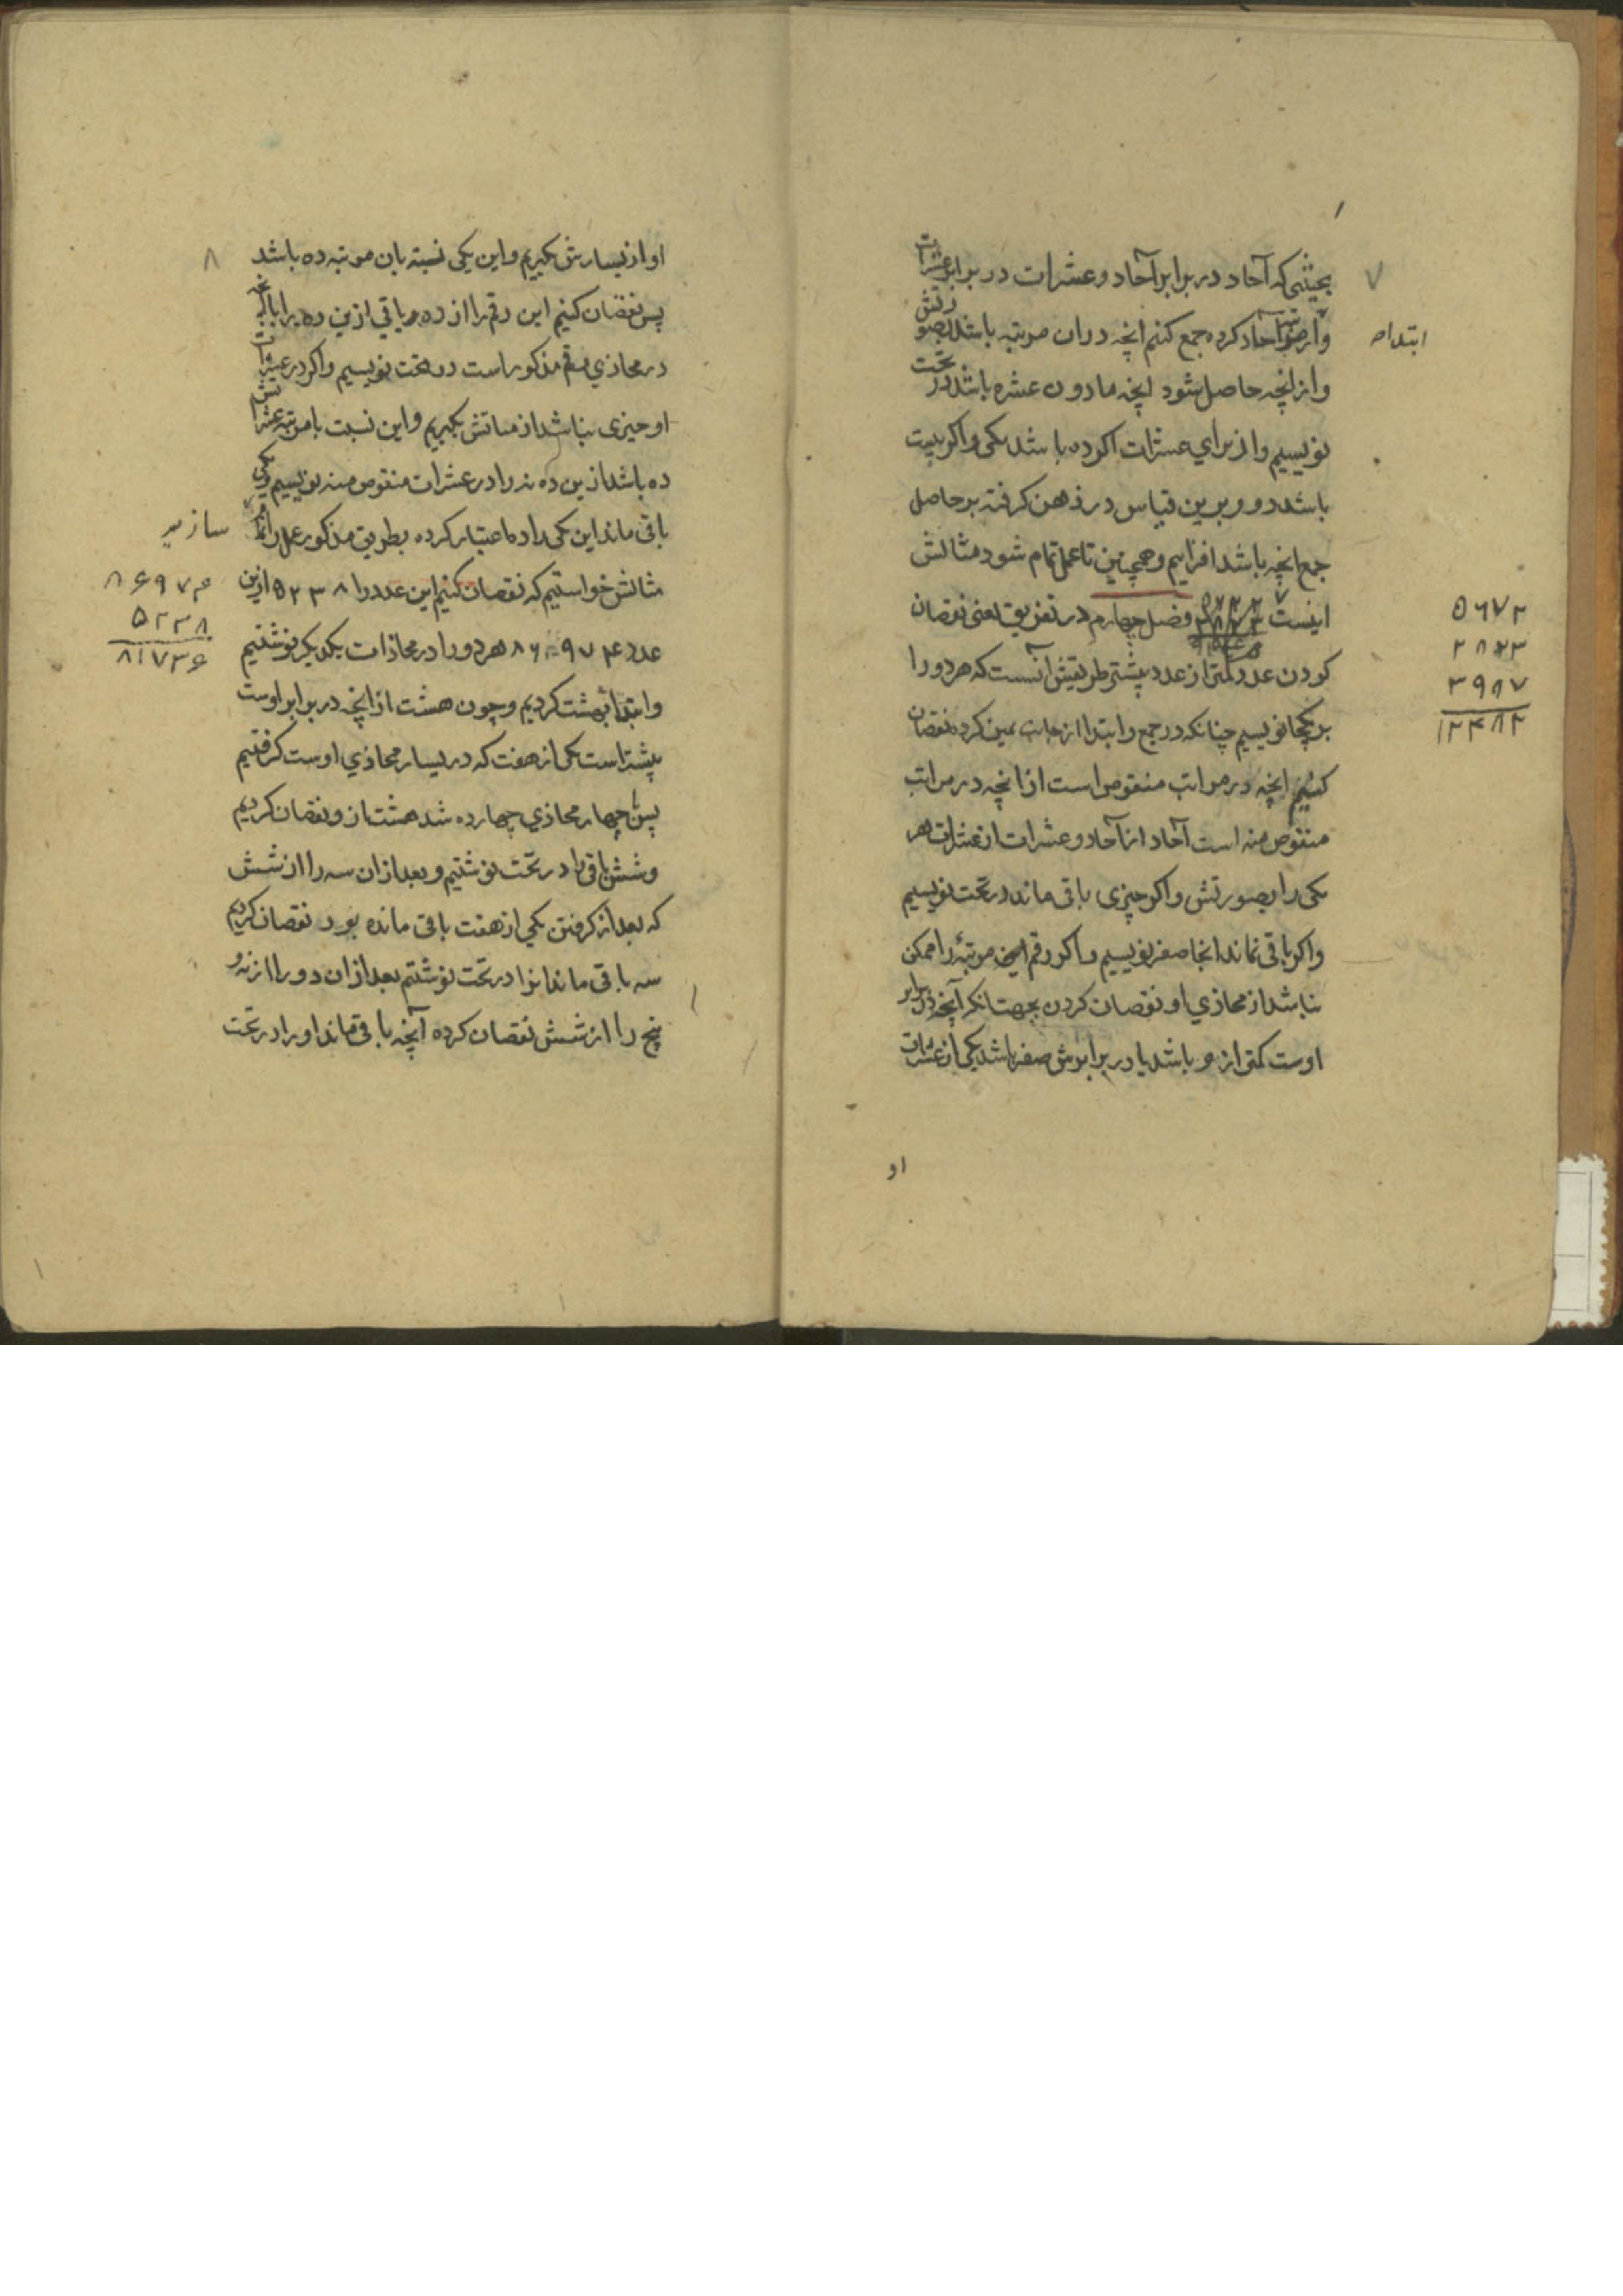 ۷
بحیثیتی که آحاد در برابر آحاد و عشرات در برابر عشرات
ابتدا
و از مرتبه آحاد کرده جمع کنیم انچه دران مرتبه باشد بصورتش
و از انچه حاصل شود انچه مادون عشره باشد در تحت
نویسیم و از برای عشرات اکر ده باشد یکی و اکر بیست
باشد دو و برین قیاس در ذهن کرفته بر حاصل
جمع انچه باشد افزاییم و همچنین تا عمل تمام شود مثالش
اینست فصل چهارم در تفریق یعنی نقصان
۵۶۷۲
۲۸۲۳
۳۹۸۷
۱۲۴۸۲
کردن عدد کمتر از عدد بیشتر طریقش آنست که هر دو را
بر یکجا نویسیم چنانکه در جمع و ابتدا از جانب یمین کرده نقصان
کنیم انچه در مراتب منقوص است از انچه در مراتب
منقوص منه است آحاد از آحاد و عشرات از عشرات هر
یکی را بصورتش و اکر چیزی باقی ماند در تحت نویسیم
و اکر باقی نماند انجا صفر نویسیم و اکر رقم این مرتبه را ممکن
نباشد از محاذی او نقصان کردن بجهت انکه آنچه در برابر
اوست کمتر از و باشد یا در برابرش صفر باشد یکی از عشرات
او
۸
او از یسارش بکیریم و این یکی نسبته بان مرتبه ده باشد
پس نقصان کنیم این رقم را از ده و باقی ازین ده را با انچه
در محاذی رقم مذکور است در تحت نویسیم و اکر در عشرات
او چیزی نباشد از مئاتش بکیریم و این نسبت با مرتبه عشراتش
ده باشد ازین ده نه را در عشرات منقوص منه نویسیم و یکی
باقی ماند این یکی را ده اعتبار کرده بطریق مذکور عمل را تمام
سازیم
مثالش خواستیم که نقصان کنیم این عدد را ۵۲۳۸ ازین
عدد ۸۶۹۷۴ هر دو را در محاذات یکدیکر نوشتیم
۸۶۹۷۴
۵۲۳۸
۸۱۷۳۶
و ابتدا بهشت کردیم و چون هشت از انچه در برابر اوست
بیشتر است یکی از هفت که در یسار محاذی اوست کرفتیم
پس با چهار محاذی چهارده شد هشت از و نقصان کردیم
و شش باقی را در تحت نوشتیم و بعد ازان سه را از شش
که بعد از کرفتن یکی از هفت باقی مانده بود نقصان کردیم
سه باقی ماند انرا در تحت نوشتیم بعد ازان دو را از نه و
پنج را از شش نقصان کرده آنچه باقی ماند او را در تحت